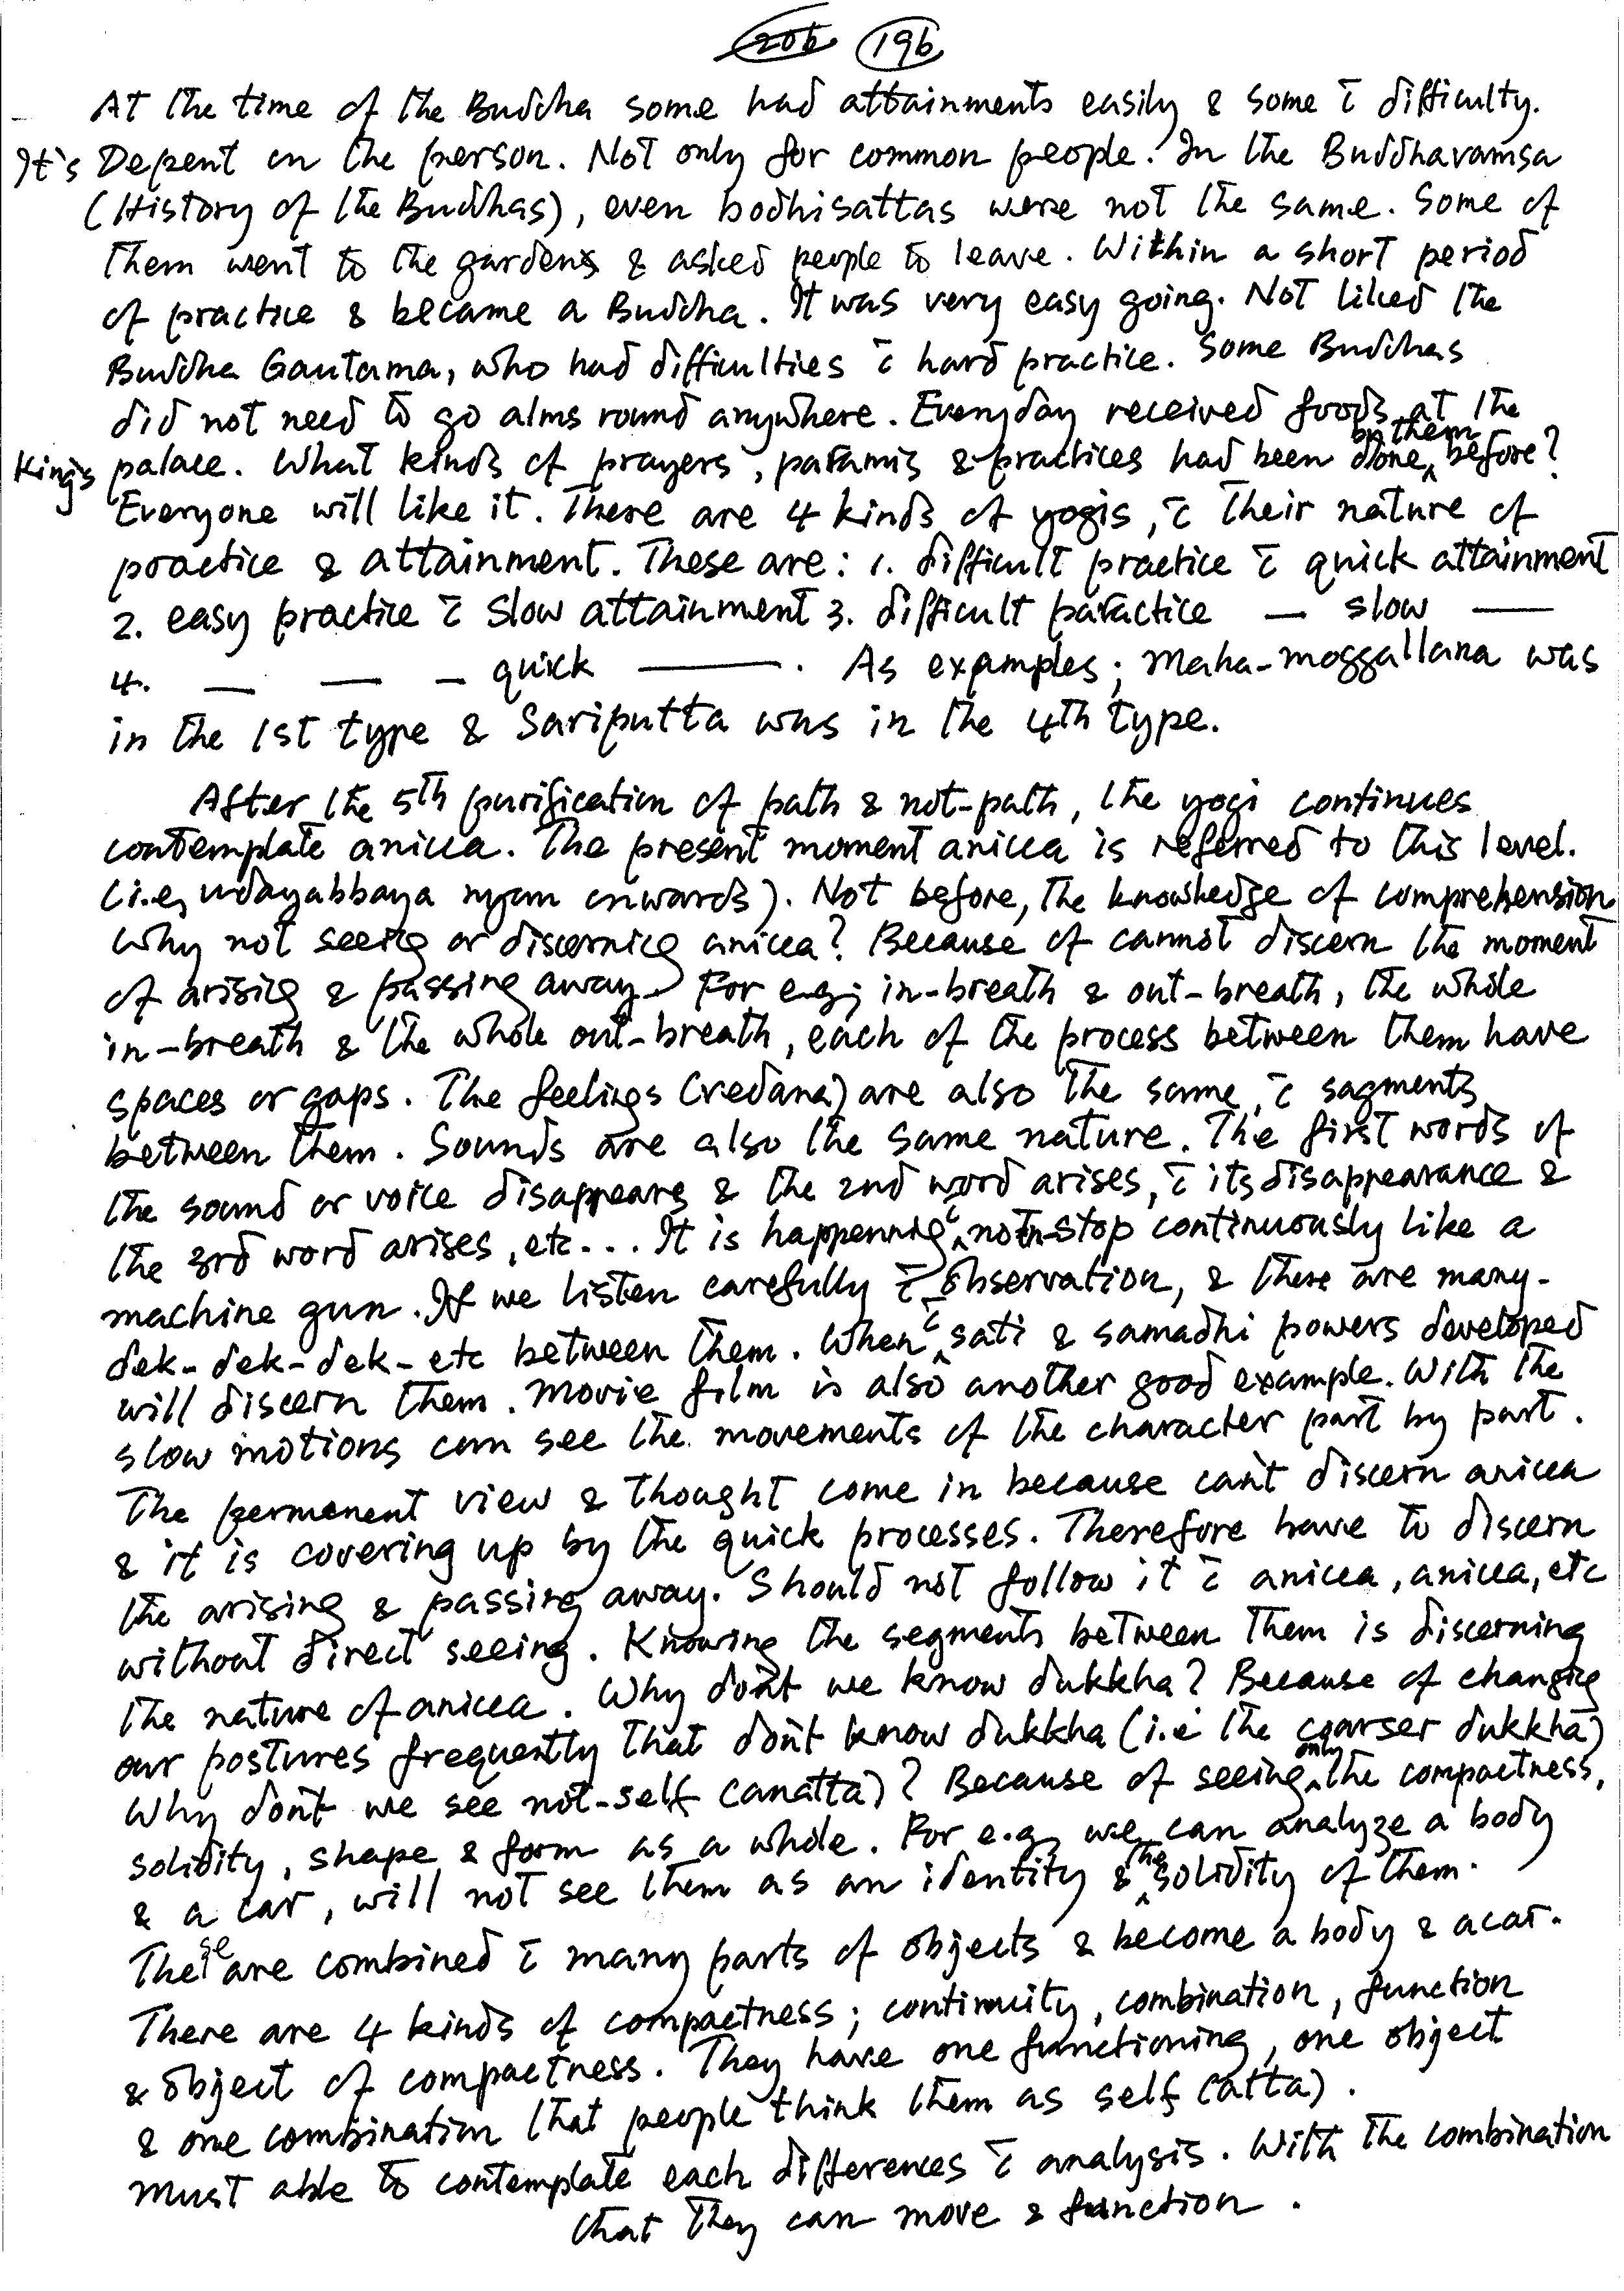 20b 19b
At the time of the Buddha some had attainments easily & some c̄ difficulty.
It's Depent on the person. Not only for common people. In the Buddhavamsa
(History of the Buddhas), even bodhisattas were not the same. Some of
them went to the gardens & asked people to leave. Within a short period
of practice & became a Buddha. It was very easy going. Not liked the
Buddha Gautama, who had difficulties c̄ hard practice. Some Buddhas
did not need to go alms round anywhere. Everyday received foods at the
King's palace. What kinds of prayers, paramis & practices had been done by them before?
Everyone will like it. There are 4 kinds of yogis, c̄ their nature of
practice & attainment. These are: 1. difficult practice c̄ quick attainment
2. easy practice c̄ slow attainment 3. difficult practice — slow —
4. — — — quick —. As examples; Maha-moggallana was
in the 1st type & Sariputta was in the 4th type.
After the 5th purification of path & not-path, the yogi continues
contemplate anicca. The present moment anicca is referred to this level.
(i.e, udayabbaya nyan onwards). Not before, the knowledge of comprehension
Why not seeing or discerning anicca? Because of cannot discern the moment
of arising & passing away. For e.g; in-breath & out-breath, the whole
in-breath & the whole out-breath, each of the process between them have
spaces or gaps. The feelings (vedana) are also the same, c̄ sagments
between them. Sounds are also the same nature. The first words of
the sound or voice disappears & the 2nd word arises, c̄ its disappearance &
the 3rd word arises, etc... It is happenning c̄ non-stop continuously like a
machine gun. If we listen carefully c̄ observation, & there are many-
dek-dek-dek-etc between them. When c̄ sati & samadhi powers developed
will discern them. Movie film is also another good example. With the
slow motions can see the movements of the character part by part.
The permanent view & thought come in because can't discern anicca
& it is covering up by the quick processes. Therefore have to discern
the arising & passing away. Should not follow it c̄ anicca, anicca, etc
without direct seeing. Knowing the segments between them is discerning
the nature of anicca. Why don't we know dukkha? Because of changing
our postures frequently that don't know dukkha (i.e the coarser dukkha)
Why don't we see not-self (anatta)? Because of seeing only the compactness,
solidity, shape & form as a whole. For e.g, we can analyze a body
& a car, will not see them as an identity & the solidity of them.
These are combined c̄ many parts of objects & become a body & a car.
There are 4 kinds of compactness; continuity, combination, function
& object of compactness. They have one functioning, one object
& one combination that people think them as self (atta).
must able to contemplate each differences c̄ analysis. With the combination
that they can move & function.